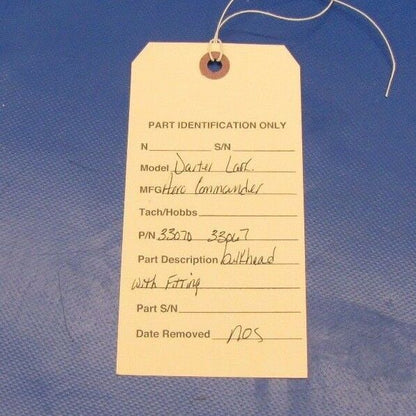 PART IDENTIFICATION ONLY
N S/N
Model Darter Lark.
MFG Aero Commander
Tach/Hobbs
P/N 33070 33067
Part Description bulkhead
with Fitting
Part S/N
Date Removed NOS